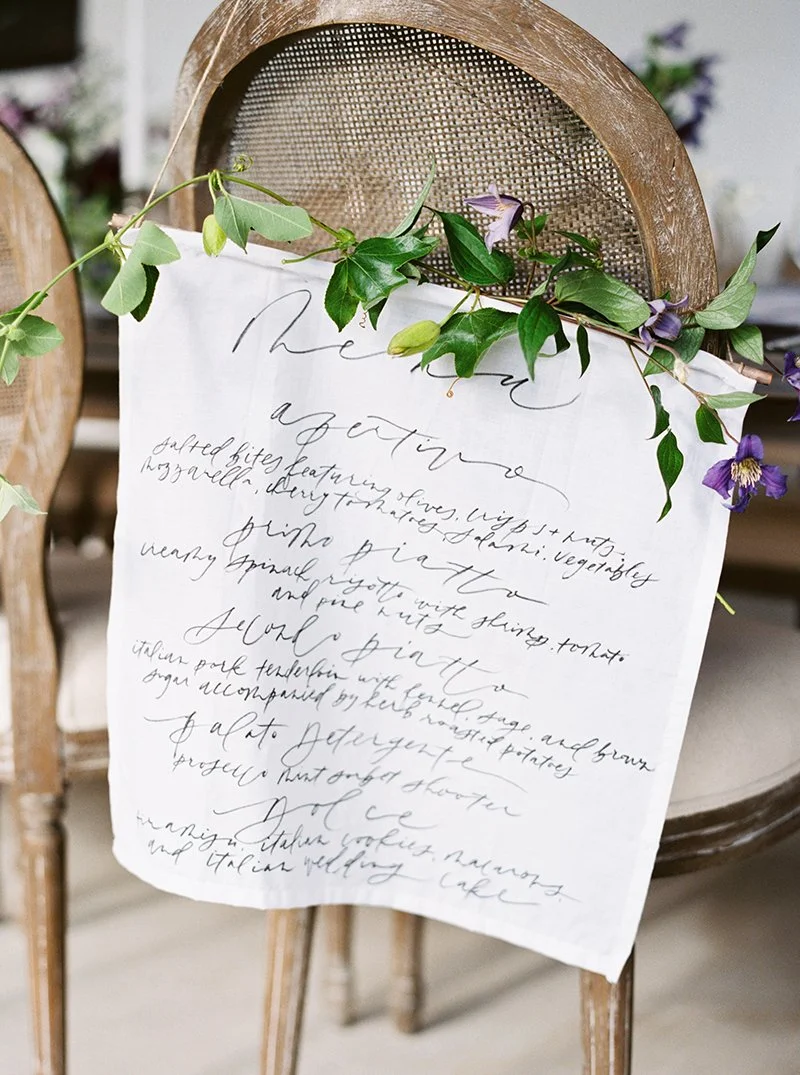 Menu
apertivo
salted bites featuring olives, crisps + nuts,
mozzarella, cherry tomatoes, salami, vegetables
primo piatto
creamy spinach risotto with shrimp, tomato
and pine nuts
secondo piatto
italian pork tenderloin with fennel, sage, and brown
sugar accompanied by herb roasted potatoes
palato detergente
prosecco mint sorbet shooter
dolce
tiramisu, italian cookies, macarons,
and italian wedding cake